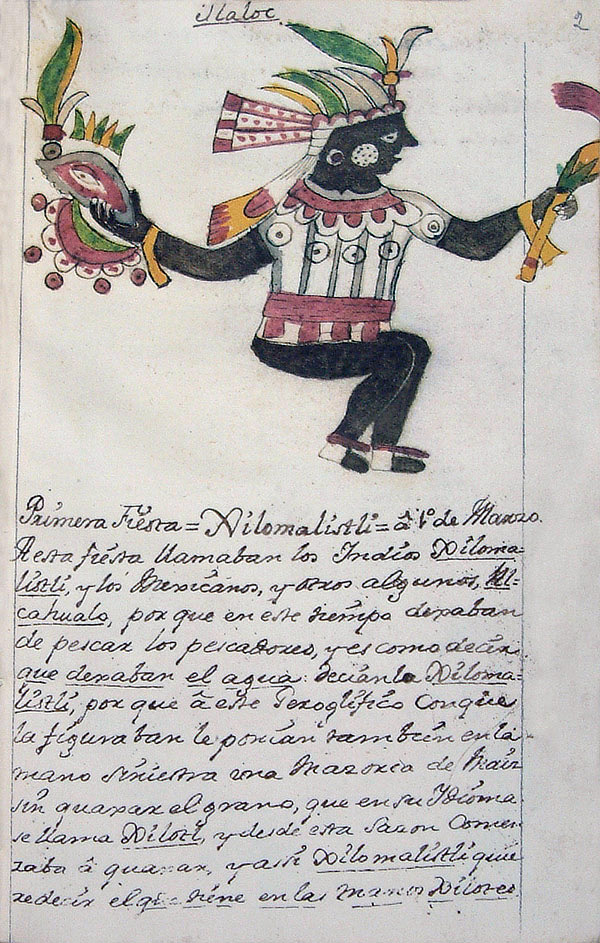 itlaloc.
2
Primera Fiesta = Xilomalistli = â 1.º de Marzo.
A esta fiesta llamaban los Indios Xiloma-
listli, y los Mexicanos, y otros algunos, At-
cahualo, por que en este tiempo dexaban
de pescar los pescadores, y es como decir
que dexaban el agua: decian la Xiloma-
listli, por que â este Geroglifico con que
la figuraban le ponian tambien en la
mano siniestra una mazorca de Maiz
sin quaxar el grano, que en su Idioma
se llama Xilotl, y desde esta sazon Comen
zaba â quaxar, y assi Xilomalistli quie
re decir el qe. tiene en las manos Xilotes